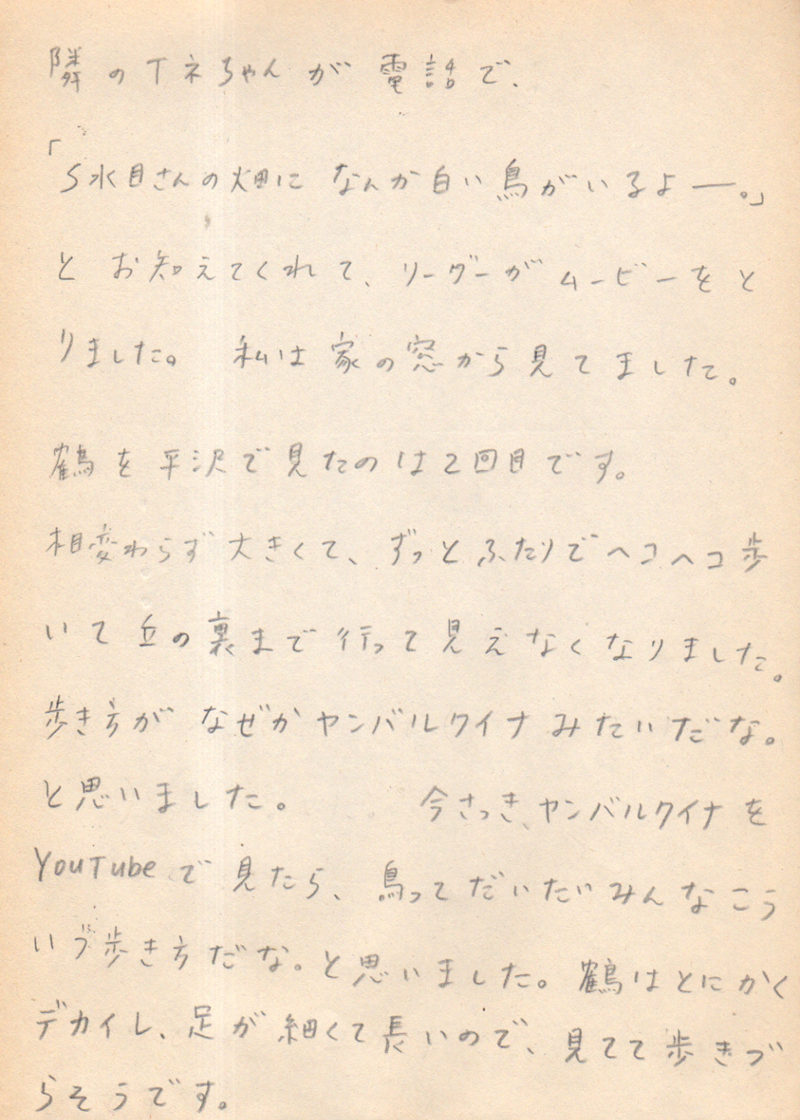 隣のTネちゃんが電話で、
「S水目さんの畑になんか白い鳥がいるよー。」
とお知えてくれて、リーダーがムービーをと
りました。 私は家の窓から見てました。
鶴を平沢で見たのは2回目です。
相変わらず大きくて、ずっとふたりでヘコヘコ歩
いて丘の裏まで行って見えなくなりました。
歩き方がなぜかヤンバルクイナみたいだな。
と思いました。 今さっき、ヤンバルクイナを
YouTubeで見たら、鳥ってだいたいみんなこう
いう歩き方だな。と思いました。鶴はとにかく
デカイし、足が細くて長いので、見てて歩きづ
らそうです。